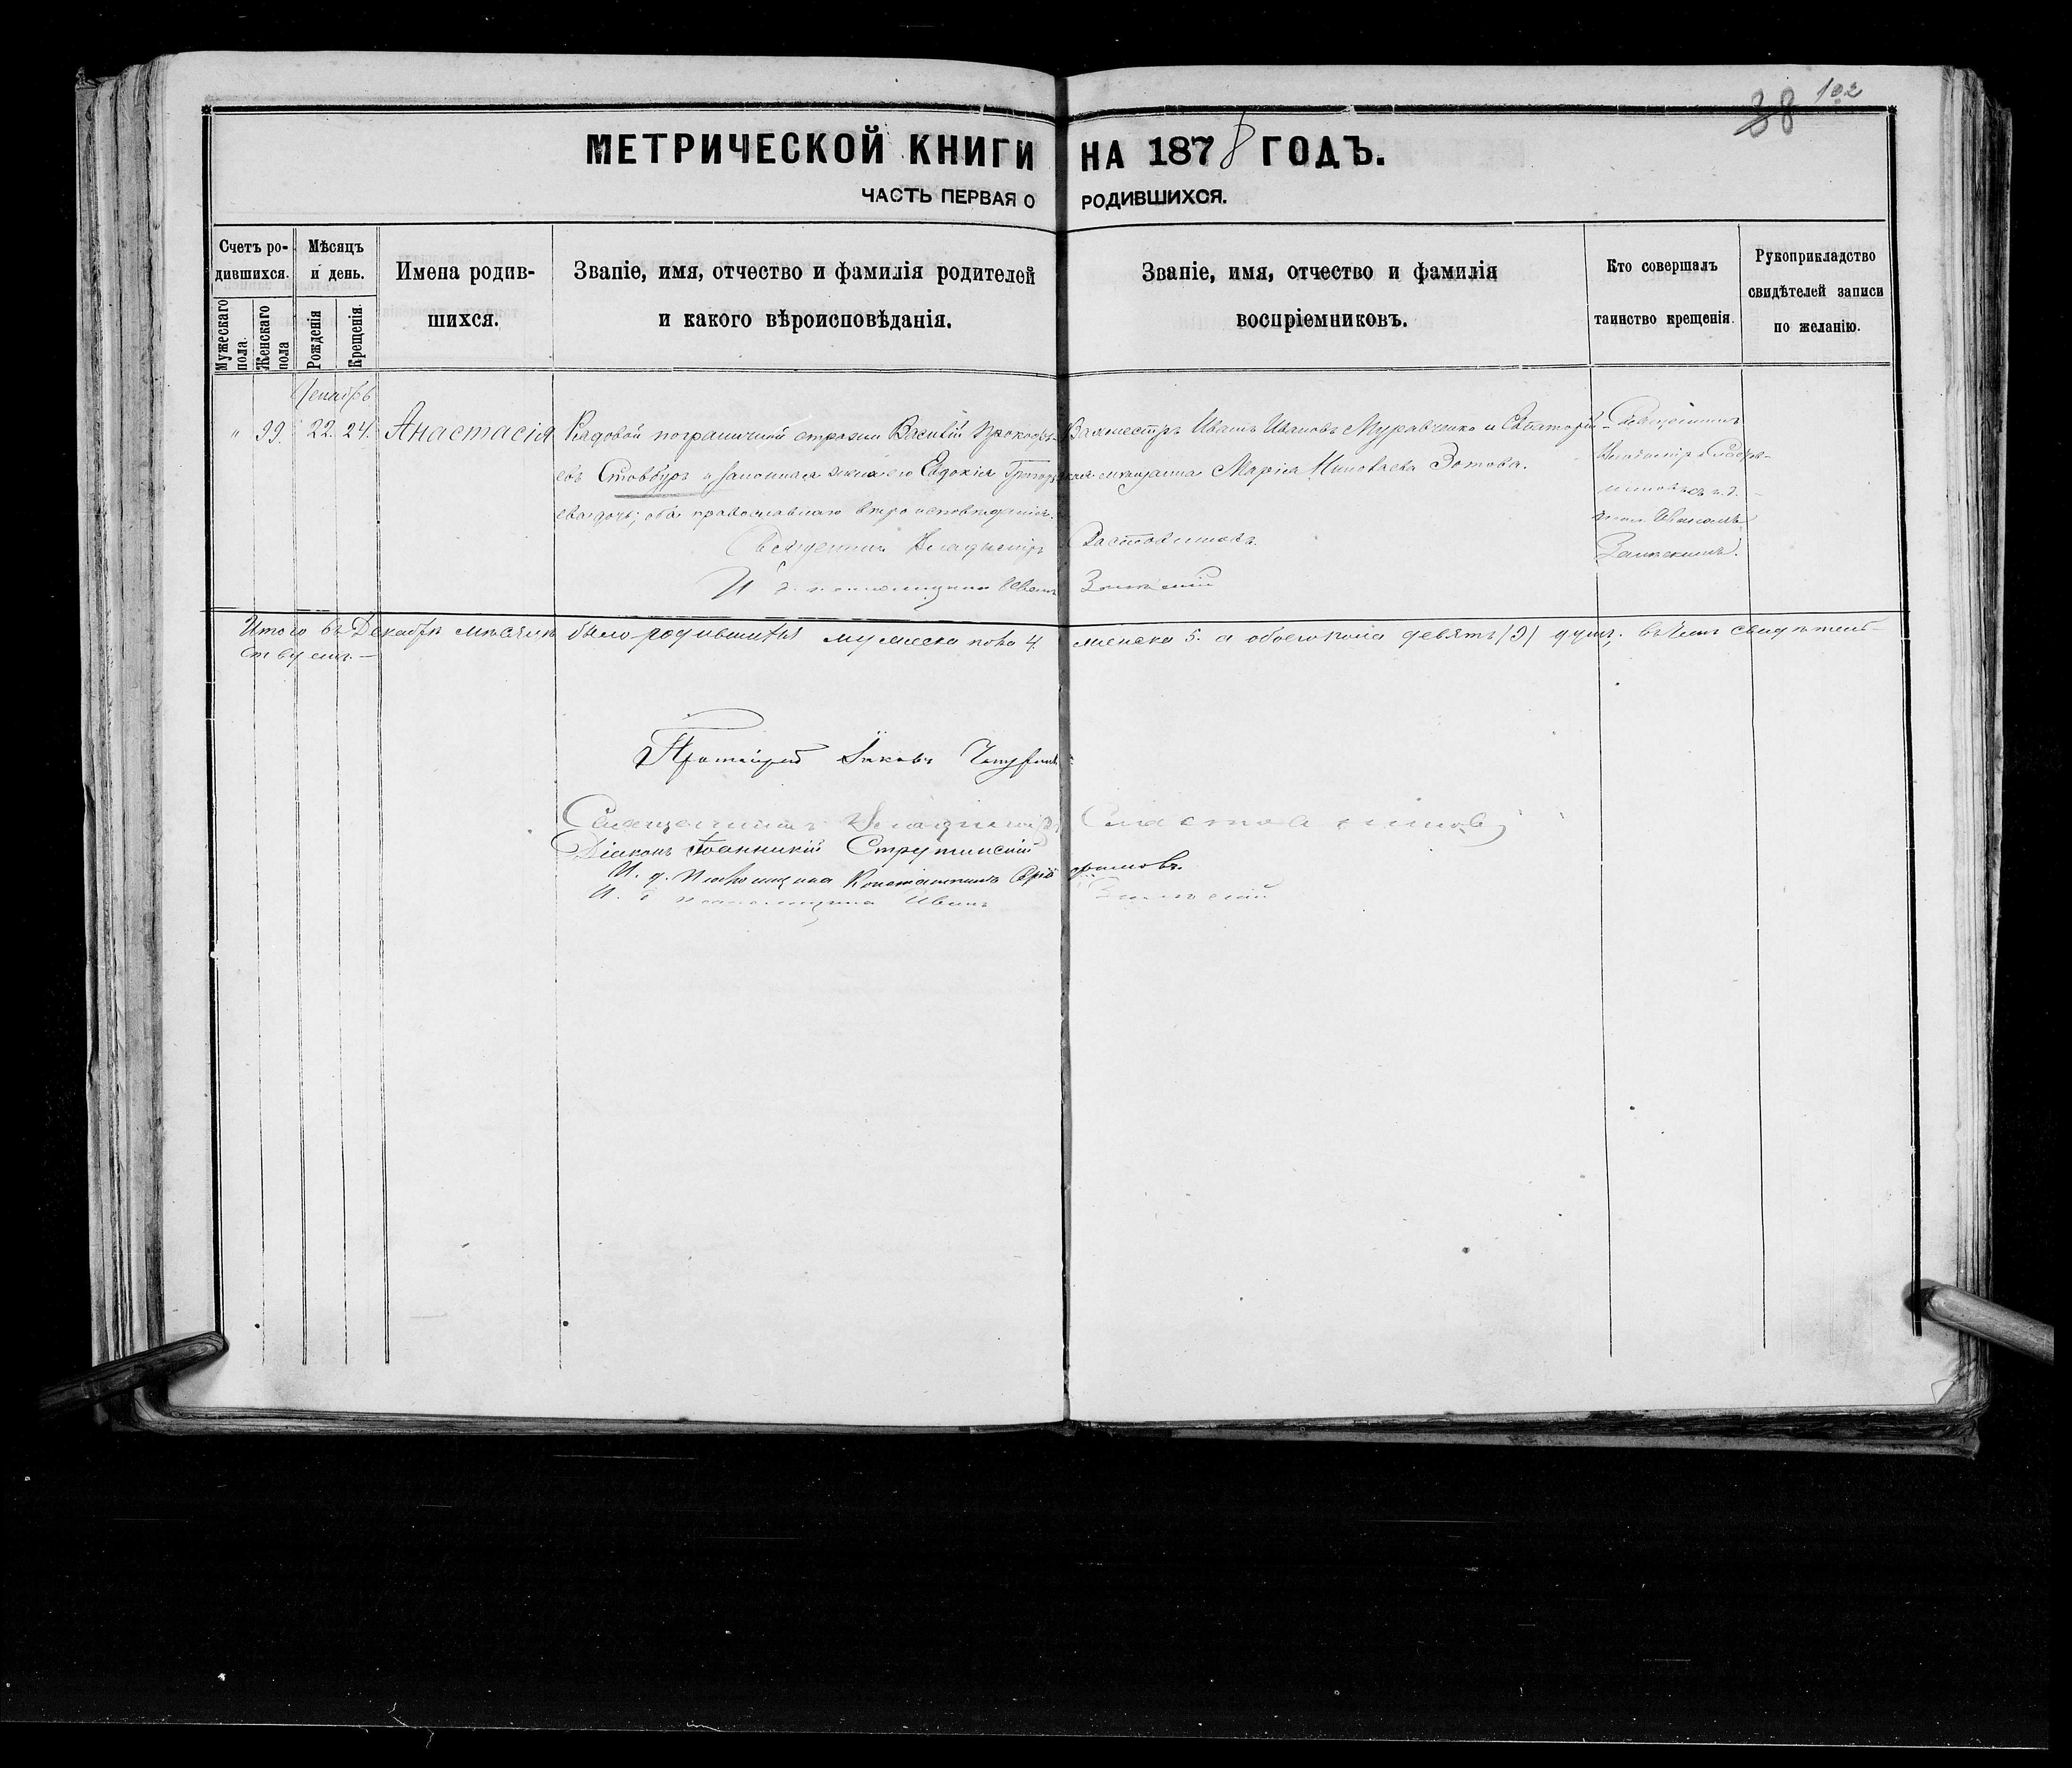 38 102
МЕТРИЧЕСКОЙ КНИГИ НА 1878 ГОДЪ.
ЧАСТЬ ПЕРВАЯ О РОДИВШИХСЯ.
Счетъ родившихся.
Мужескаго пола.
Женскаго пола
Мѣсяцъ и день.
Рожденія
Крещенія.
Имена родившихся.
Званіе, имя, отчество и фамилія родителей
и какого вѣроисповѣданія.
Званіе, имя, отчество и фамилія
воспріемниковъ.
Кто совершалъ
таинство крещенія.
Рукоприкладство
свидѣтелей записи
по желанію.
Декабрь
" 99. 22. 24. Анастасія
Рядовой пограничной стражи Василій Прокофь-
евъ Стовбуръ и законная жена его Евдокія Григорь-
ева дочь; оба православнаго вѣроисповѣданія.
Вахмистръ Иванъ Ивановъ Муравченко и Евпаторій-
ская мѣщанка Марія Николаева Зотова.
Священникъ
Владиміръ
и. д.
Иваномъ
Священникъ Владиміръ
И. д. псаломщика Иванъ
Итого въ Декабрѣ мѣсяцѣ было родившихся мужеска пола 4. женска 5. а обоего пола девять (9) душъ; въ чемъ свидѣтель-
ствуемъ. —
Протоіерей Іаковъ
Священникъ Владиміръ
Діаконъ Іоанникій Струтинскій
И. д. псаломщика Константинъ
И. д. псаломщика Иванъ